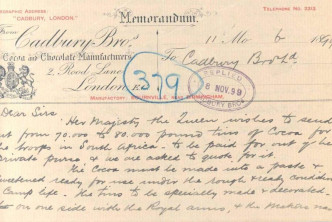 TELEGRAPHIC ADDRESS
"CADBURY, LONDON"
Memorandum.
TELEPHONE No 2213
From
Cadbury Bros
To Cadbury Bros Ld
Cocoa and Chocolate Manufacturers
2 Rood Lane
London E.
379
REPLIED
8 NOV. 99
CADBURY BROS
MANUFACTORY: BOURNVILLE, NEAR BIRMINGHAM.
Dear Sirs
Her Majesty the Queen wishes to send
out from 70,000 to 80,000 pound tins of Cocoa for
the troops in South Africa - to be paid for out of her
private purse, & we are asked to quote for it.
The Cocoa must be made into a paste &
sweetened ready for use under the rough & ready conditions
Camp life. The tins to be specially made & decorated
on one side with the Royal Arms, & the makers name